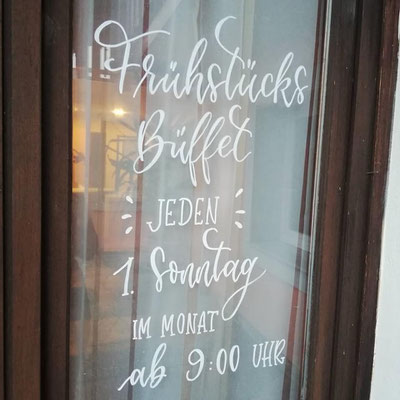 Frühstücks
Büffet
JEDEN
1. Sonntag
IM MONAT
ab 9:00 UHR